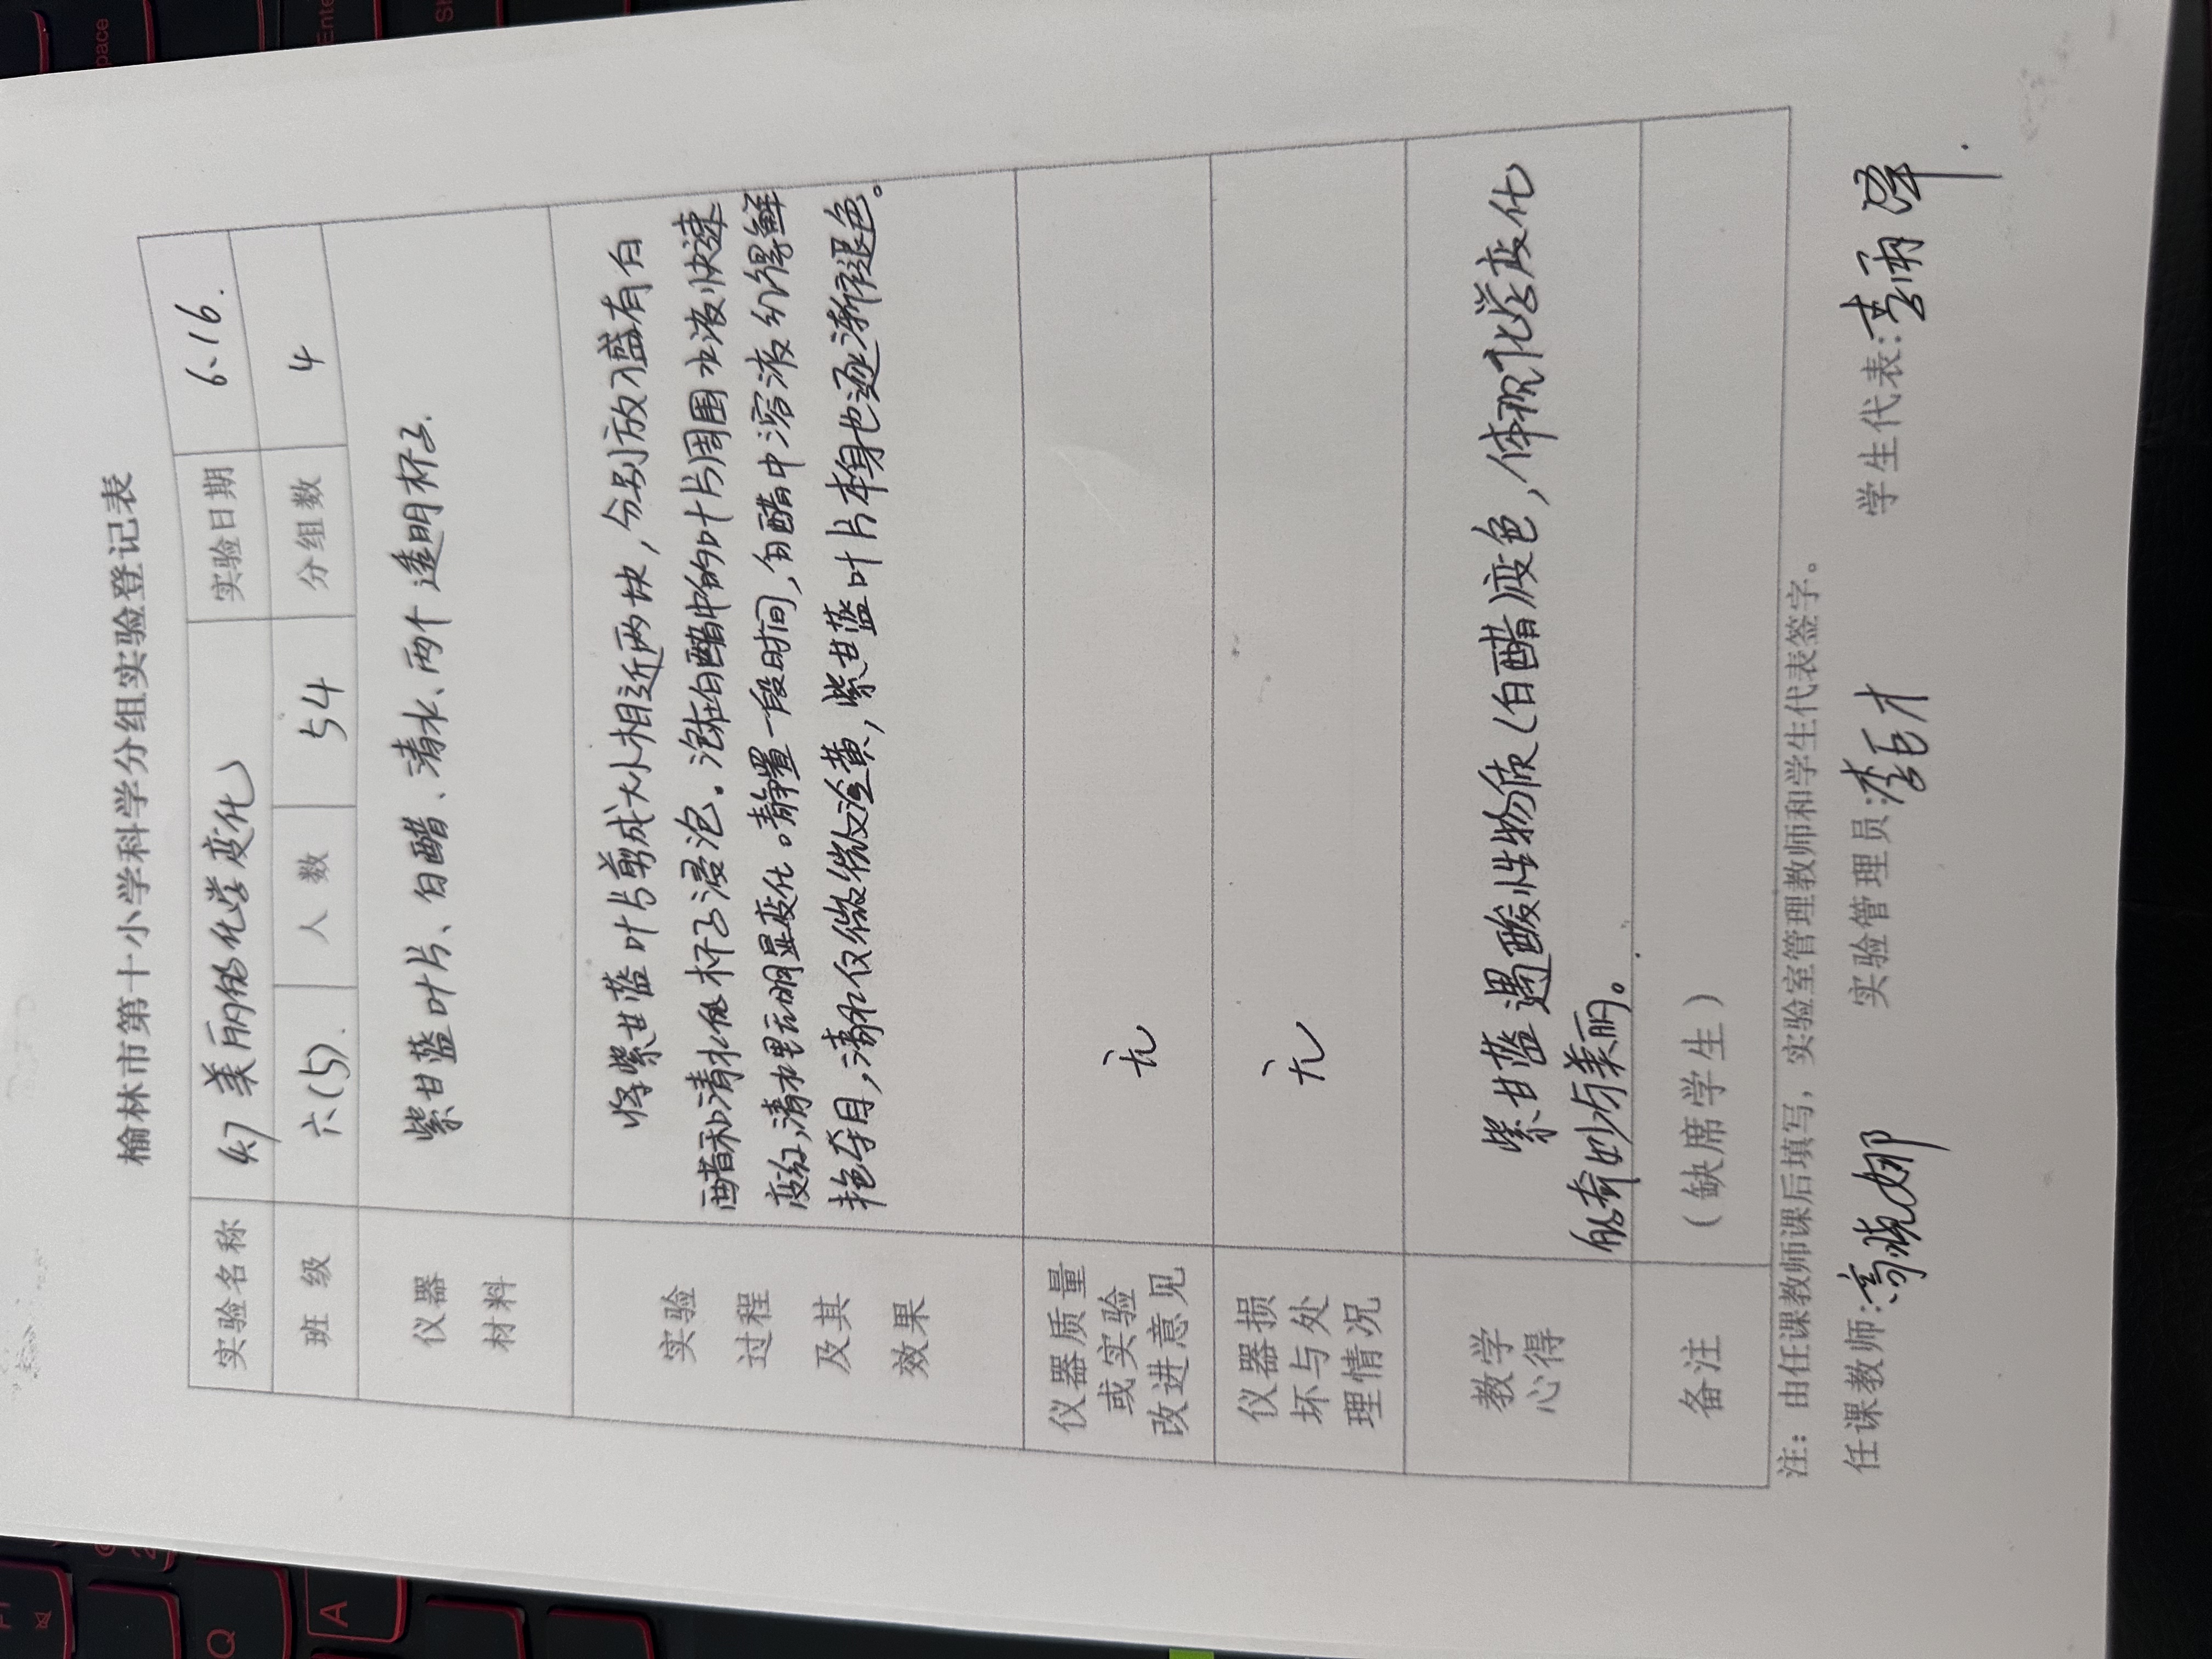 榆林市第十小学科学分组实验登记表
实验名称 4.7 美丽的化学变化 实验日期 6.16.
班 级 六(5). 人 数 54 分组数 4
仪器
材料
紫甘蓝叶片、白醋、清水、两个透明杯子.
实验
过程
及其
效果
将紫甘蓝叶片剪成大小相近两块，分别放入盛有白
醋和清水低杯子浸泡。泡在白醋中的叶片周围水液快速
变红，清水里无明显变化。静置一段时间，白醋中溶液红得鲜
艳夺目，清水仅微微泛黄，紫甘蓝叶片本身也逐渐褪色。
仪器质量
或实验
改进意见
无
仪器损
坏与处
理情况
无
教学
心得
紫甘蓝遇酸性物质（白醋）变色，体现化学变化
的奇妙与美丽。
备注
（缺席学生）
注：由任课教师课后填写，实验室管理教师和学生代表签字。
任课教师:高晓娜 实验管理员: 学生代表:
Enter
Q
A